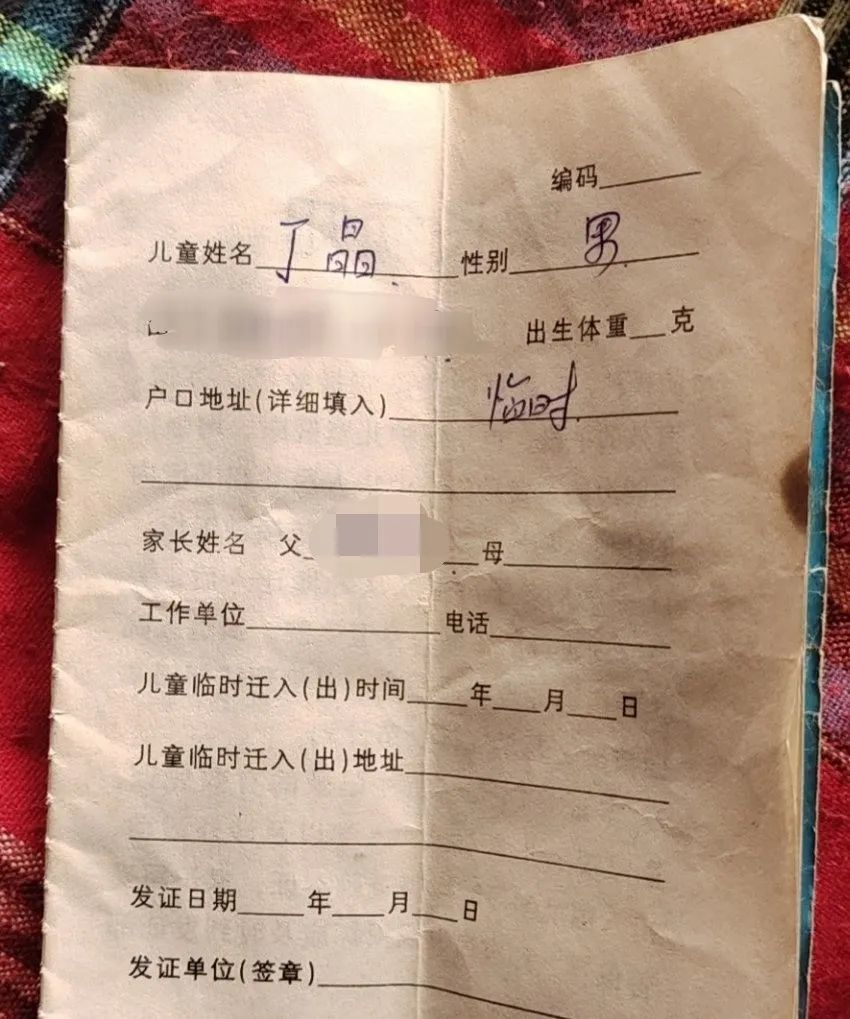 编码______
儿童姓名 丁晶 性别 男
出生体重___克
户口地址(详细填入) 临时
家长姓名 父______母______
工作单位______电话______
儿童临时迁入(出)时间____年___月___日
儿童临时迁入(出)地址______
发证日期____年___月___日
发证单位(签章)______